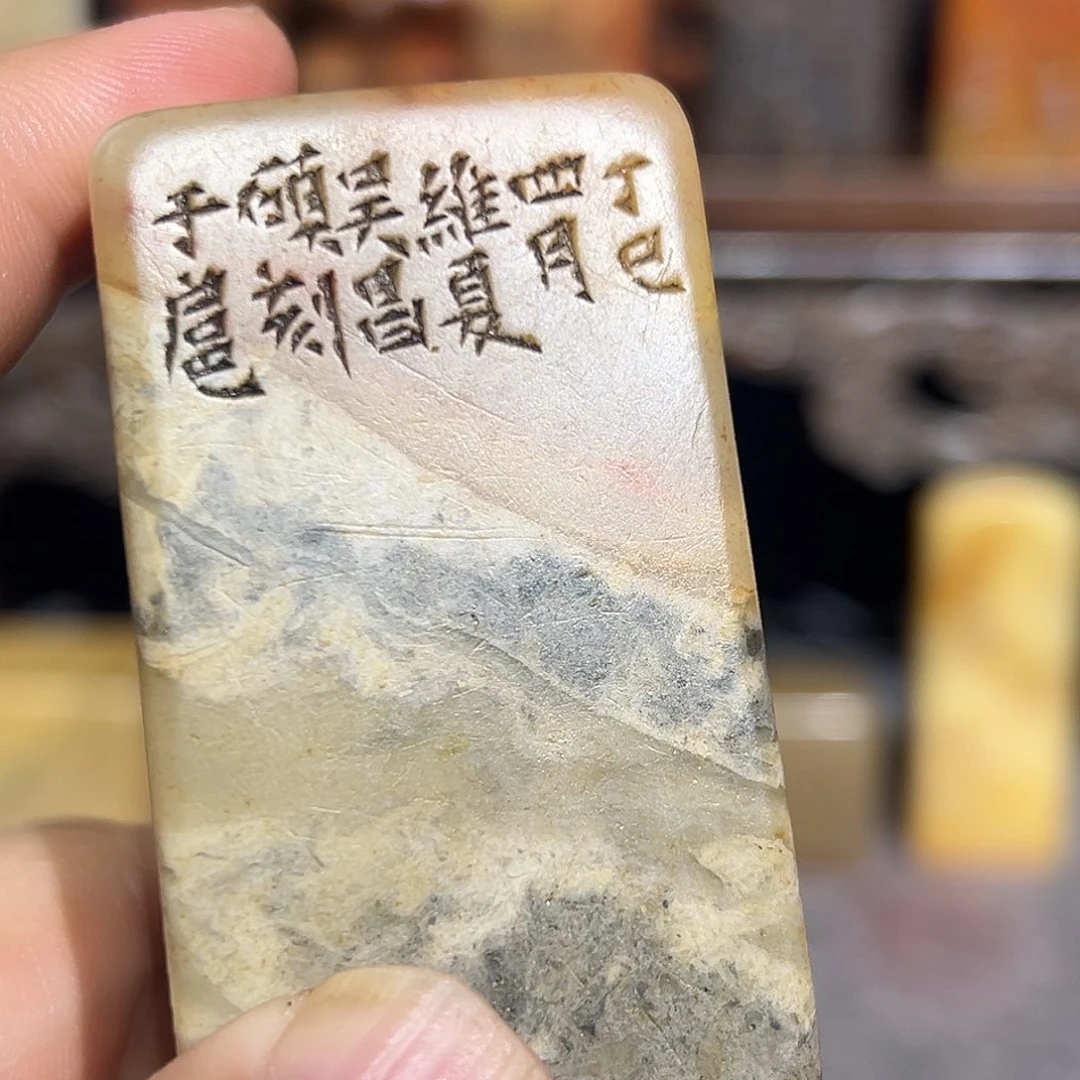 丁巳
四月
維夏
吳昌
碩刻
于扈